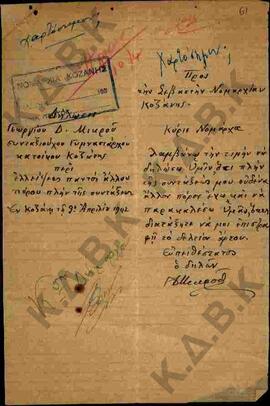 χαρτόσημον
ΝΟΜΑΡΧΙΑ ΚΟΖΑΝΗΣ
Δήλωσις
Γεωργίου Δ. Μικρού
συνταξιούχου Γυμνασιάρχου
κατοίκου Κοζάνης
περί
ελλείψεως παντός άλλου
πόρου πλήν της συντάξεως
Εν Κοζάνη τη 9 Απριλίου 1942
61
Χαρτόσημον
Προς
την Σεβαστήν Νομαρχίαν
Κοζάνης.
Κύριε Νομάρχα
Λαμβάνω την τιμήν να
δηλώσω Υμίν ότι πλήν
της συντάξεώς μου ουδένα
άλλον πόρον έχω και να
παρακαλέσω Υμάς, όπως
διατάξητε να μοι επιστρα-
φή το δελτίον άρτου.
Ευπειθέστατος
ο δηλών
ΓΔΜικρού
Κ.Δ.Β.Κ